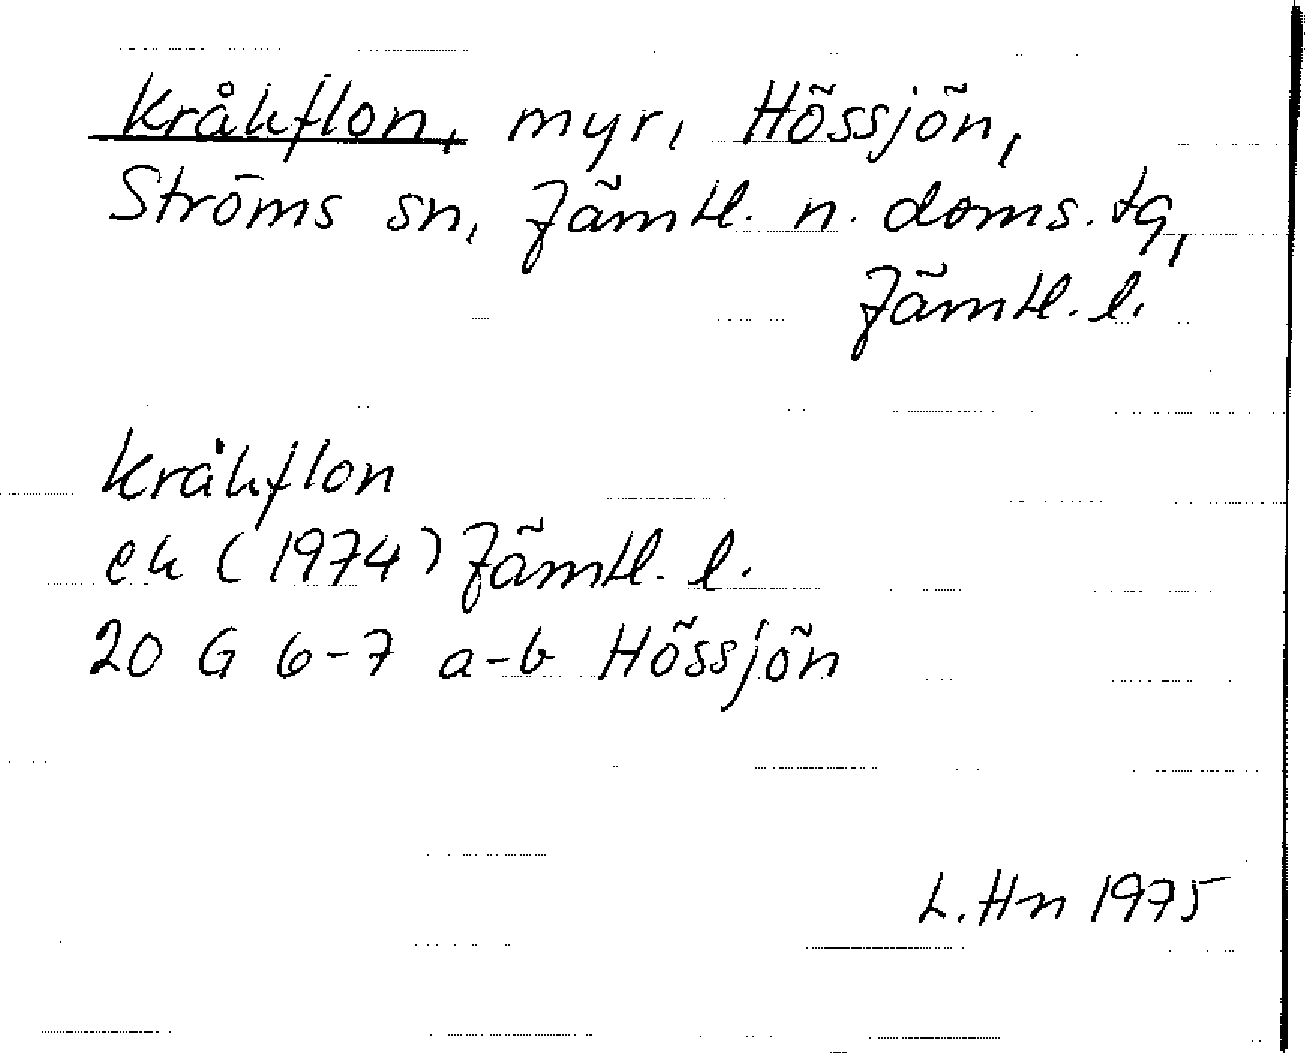 Kråkflon, myr, Hössjön,
Ströms sn, Jämtl. n. doms. tg,
Jämtl. l.
Kråkflon
ek (1974) Jämtl. l.
20 G 6-7 a-b Hössjön
L. Hn 1975